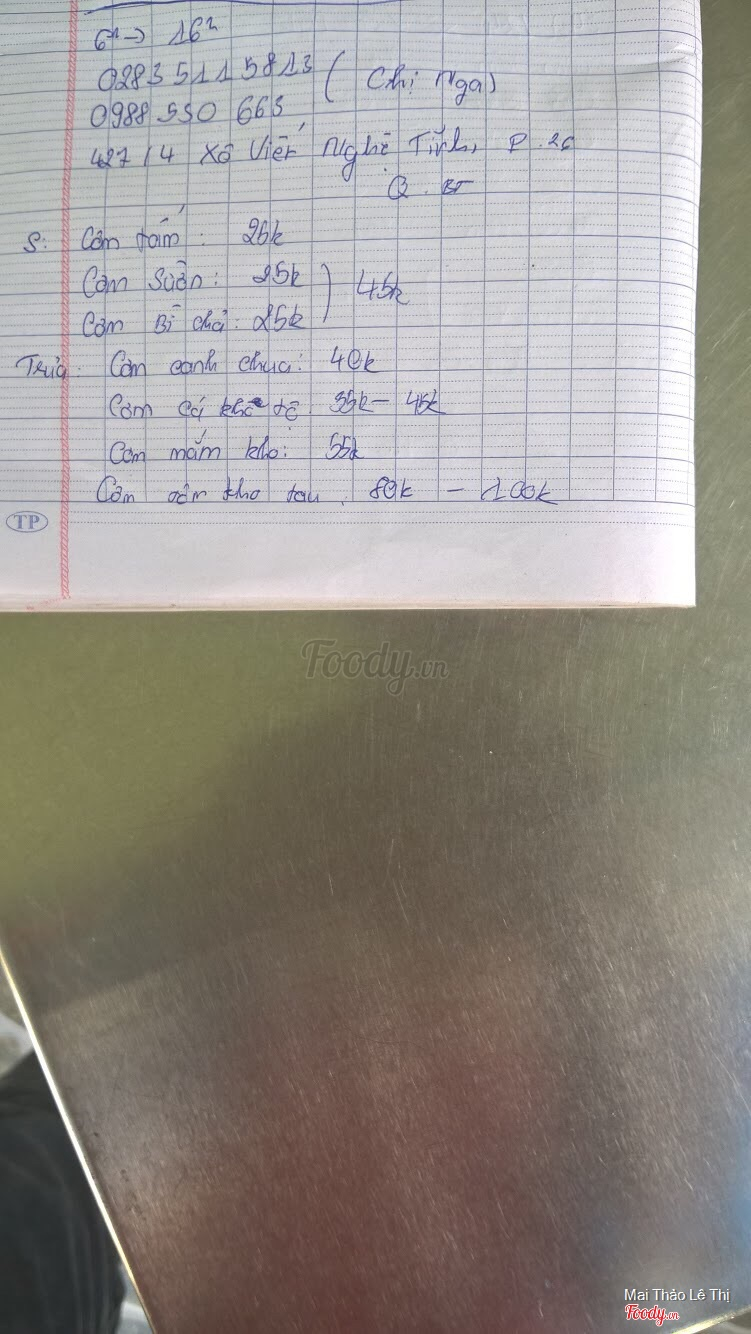 6h -> 16h
0283 511 5813 (Chị Nga)
0988 530 663
427/4 Xô Viết Nghệ Tĩnh, P.26
Q. BT
S: Cơm tấm: 26k
Cơm Sườn: 25k
Cơm Bì chả: 25k } 45k
Trưa: Cơm canh chua: 40k
Cơm cá kho tộ: 35k - 45k
Cơm mắm kho: 55k
Cơm tôm kho tàu: 80k - 100k
TP
Foody.vn
Mai Thảo Lê Thị
Foody.vn